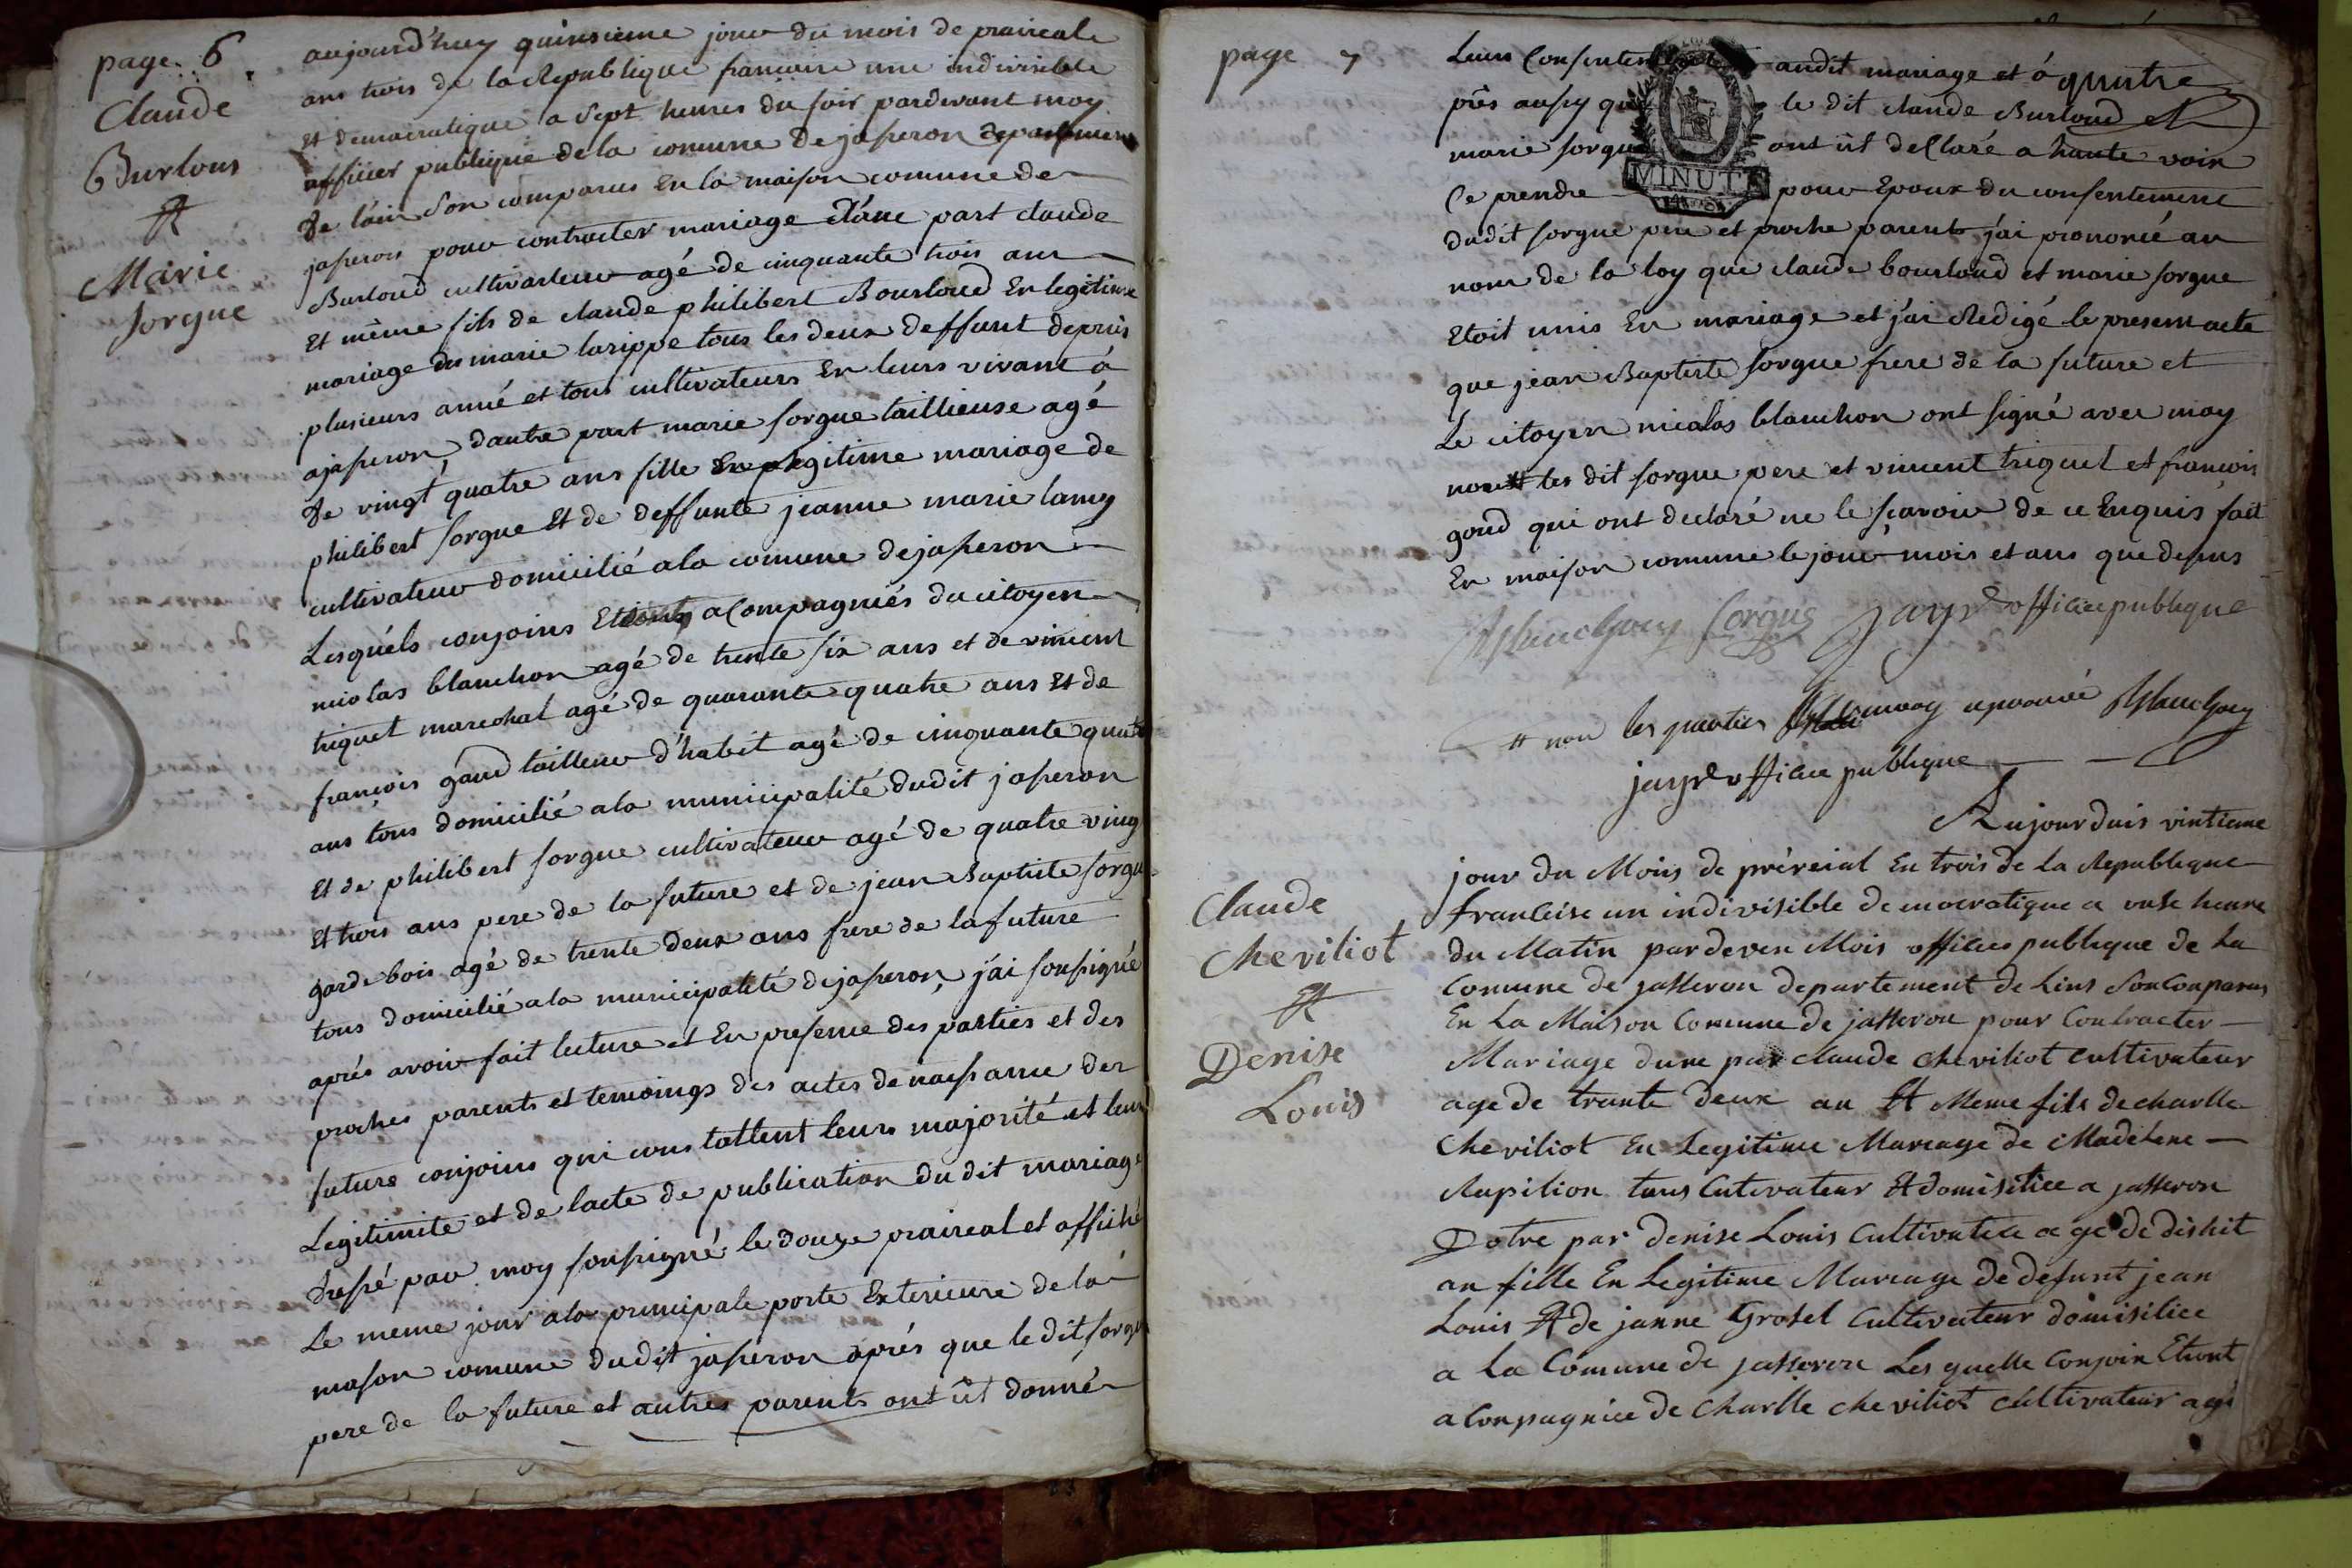 page. 6
Claude
Burlous
et
Marie
Sorgue
aujourd'huy quinsieme jour du mois de praireale
ans trois de la Republique francoise une indivisible
et democratique a Sept heures du soir pardevant moy
officier publique de la comune de jaseron departement
de l'ain Son comparus En la maison comune de
jaseron pour contracter mariage d'une part claude
Burloud cultivateur agé de cinquante trois ans
Et même fils de claude philibert Bourloud En legitime
mariage de marie larippe tous les deux deffunt depuis
plusieurs anné et tous cultivateurs En leurs vivant à
ajaseron dautre part marie sorgue taillieuse agé
de vingt quatre ans fille En legitime mariage de
philibert sorgue Et de deffunte jeanne marie lamy
cultivateur domicilié a la comune de jaseron
Lesquels conjoins Etions acompagniés du citoyen
nicolas blanchon agé de trente six ans et de vincent
triquet marechal agé de quarante quatre ans Et de
francois goud tailleur d'habit agé de cinquante quatre
ans tous domicilié a la municipalité dudit jaseron
Et de philibert sorgue cultivateur agé de quatre ving
Et trois ans pere de la future et de jean Baptiste sorgue
garde bois agé de trente deux ans frere de la future
tous domicilié a la municipalité de jaseron, j'ai soussigné
aprés avoir fait lecture et En presence des parties et des
proches parents et temoings des actes de naissance des
future conjoins qui constattent leurs majorité et leur
Legitimite et de lacte de publication du dit mariage
dressé par moy soussigné le douze praireal et affiché
Le meme jour a la principale porte Exterieure de la
mason comune dudit jaseron aprés que le dit sorgue
pere de la future et autres parents ont ût donné
page 7
Leurs Consentement audit mariage et à quatre
prês aussy que le dit claude Burloud et
marie sorgue ont ût declaré a haute voix
MINUTE
Ce prendre pour Epoux du consentement
dudit sorgue pere et proche parents j'ai prononcé au
nom de la loy que claude bourloud et marie sorgue
Etoit unis En mariage et j'ai Redigé le present acte
que jean Baptiste sorgue frere de la future et
Le citoyen nicolas blanchon ont signé avec moy
non les dit sorgue pere et vincent triquet et francois
goud qui ont declaré ne le scavoir de ce Enquis fait
En maison comune le jour mois et ans que desus
Blanchon Sorgue jayr officier publique
non les parties aprouvé Blanchon
jayr officier publique
Aujourduis vintieme
Claude
Cheviliot
et
Denise
Louis
jour du Mois de prereial En trois de La Republique
franceise un indivisible democratique a onse heure
du Matin pardeven Mois officier publique de La
Comune de jasseron departement de Lins Son Conparus
En La Maison Comune de jasseron pour Contracter
Mariage dune par claude cheviliot Cultivateur
age de trante deux an Et Meme fils de charlle
Cheviliot En Legitime Mariage de Madelene
Rapilion tous Cutivateur Et domisiliee a jasseron
Dotre par denise Louis Cultivatrice age de dishit
an fille En Legitime Mariage de defunt jean
Louis Et de janne Grosel Cultivateur domisiliee
a La Comune de jasseron Les quelle Conjoin Etiont
a Conpagniee de Charlle cheviliot Cultivateur age